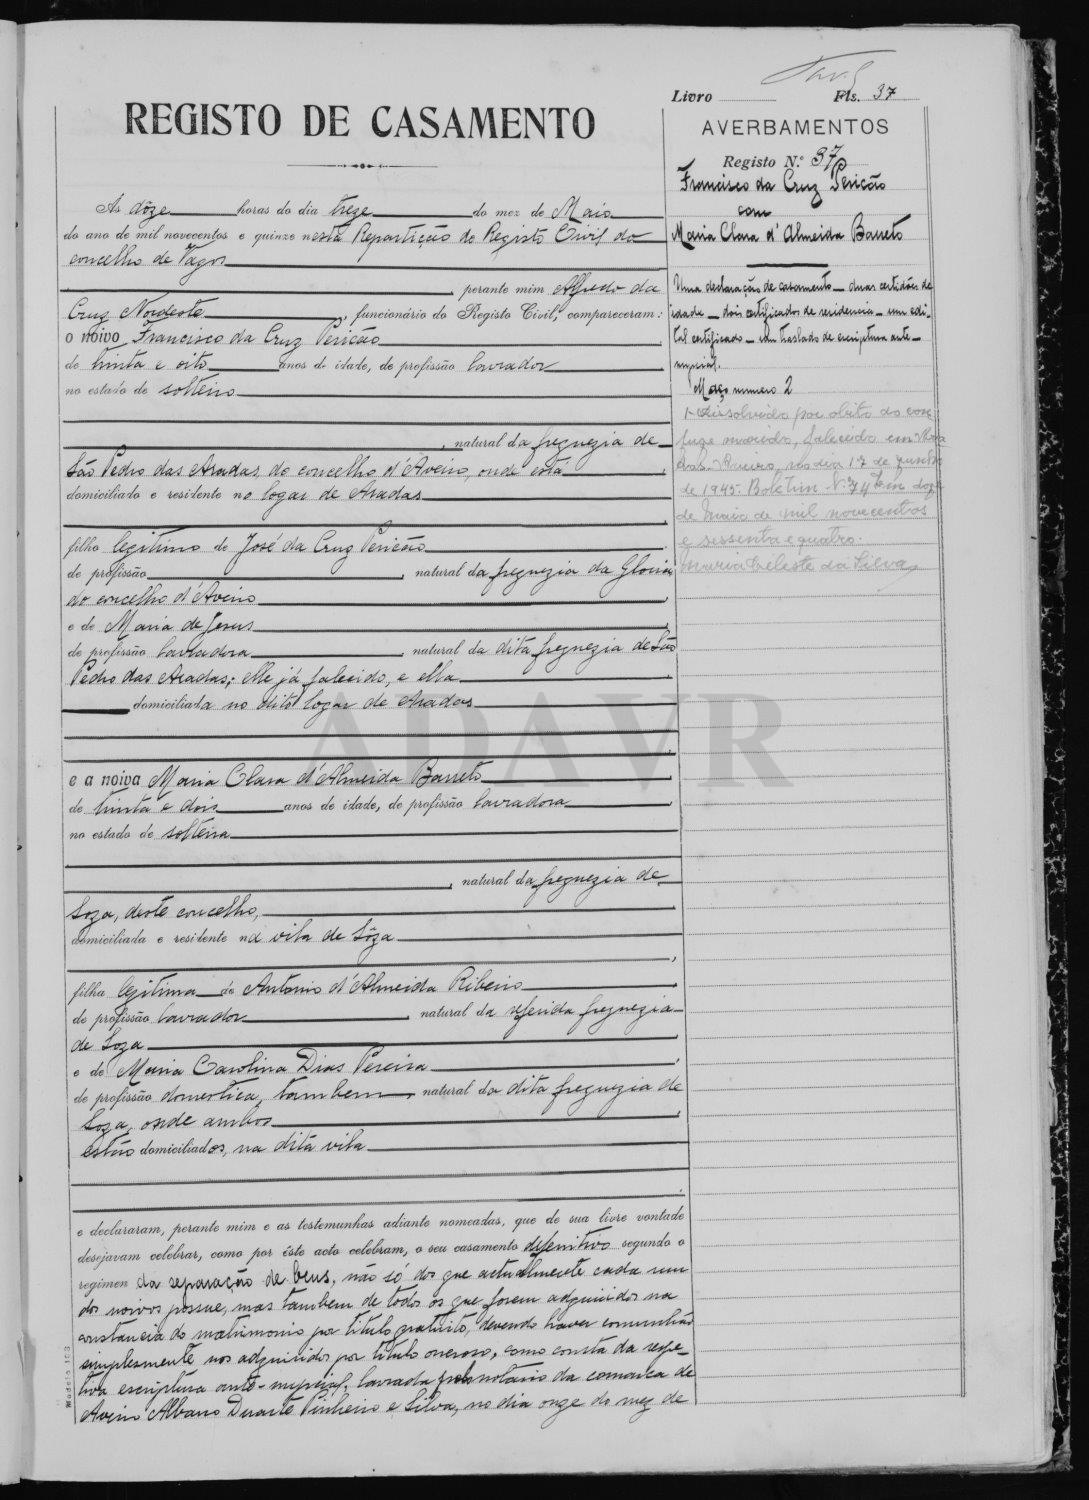 Livro Fls. 37
REGISTO DE CASAMENTO
AVERBAMENTOS
Registo N.º 37
Francisco da Cruz Pericão
com
Maria Clara d'Almeida Barreto
Uma declaração de casamento — duas certidões de
idade — dois certificados de residencia — um edi-
tal certificado — um traslado de escriptura ante-
nupcial.
Maço numero 2
1- Dissolvido por obito do con-
juge marido, falecido em
no dia 17 de Junho
de 1945. Boletim N.º 74 em doze
de Maio de mil novecentos
e sessenta e quatro.
Maria Celeste da Silva
Ás dôze horas do dia treze do mez de Maio
do ano de mil novecentos e quinze nesta Repartição do Registo Civil do
concelho de Vagos
perante mim Alfredo da
Cruz Nordeste, funcionário do Registo Civil, compareceram:
o noivo Francisco da Cruz Pericão
de trinta e oito anos de idade, de profissão lavrador
no estado de solteiro
, natural da freguezia de
São Pedro das Aradas, do concelho d'Aveiro, onde está
domiciliado e residente no logar de Aradas
filho legitimo de José da Cruz Pericão
de profissão , natural da freguezia da Gloria
do concelho d'Aveiro
e de Maria de Jesus
de profissão lavradora , natural da dita freguezia de São
Pedro das Aradas; elle já falecido, e ella
domiciliada no dito logar de Aradas
ADAVR
e a noiva Maria Clara d'Almeida Barreto
de trinta e dois anos de idade, de profissão lavradora
no estado de solteira
, natural da freguezia de
Soza, deste concelho,
domiciliada e residente na vila de Sôza
filha legitima de Antonio d'Almeida Ribeiro
de profissão lavrador , natural da referida freguezia
de Soza
e de Maria Carolina Dias Pereira
de profissão domestica, tambem natural da dita freguezia de
Soza, onde ambos
estão domiciliados, na dita vila
e declararam, perante mim e as testemunhas adiante nomeadas, que de sua livre vontade
desejavam celebrar, como por êste acto celebram, o seu casamento definitivo segundo o
regimen da separação de bens, não só dos que actualmente cada um
dos noivos possue, mas tambem de todos os que forem adquiridos na
constancia do matrimonio por titulo gratuito, devendo haver comunhão
simplesmente nos adquiridos por titulo oneroso, como consta da respe-
tiva escriptura ante-nupcial, lavrada pelo notario da comarca de
Aveiro Albano Duarte Pinheiro e Silva, no dia onze do mez de
Modelo 103